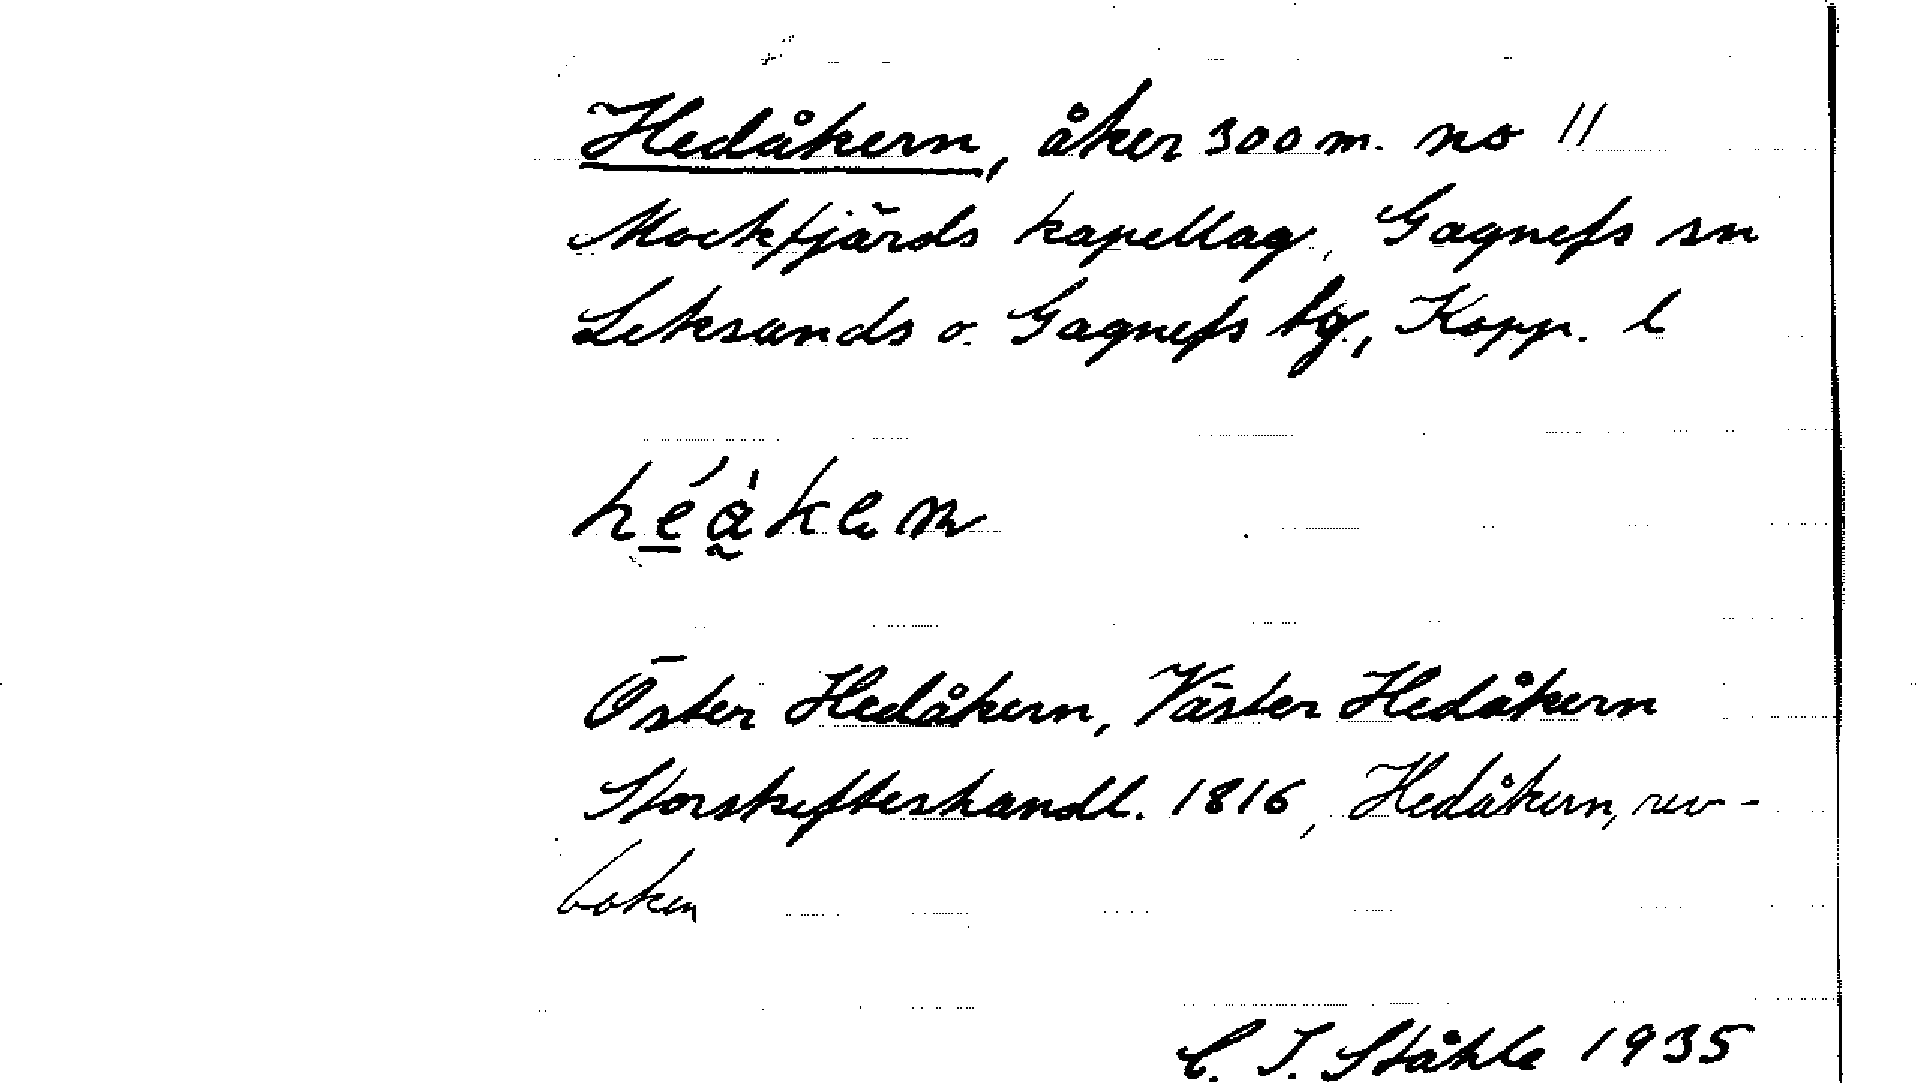 Hedåkern, åker 300 m. no 11
Mockfjärds kapellag, Gagnefs sn
Leksands o. Gagnefs tg., Kopp. l
Öster Hedåkern, Väster Hedåkern
Storskifteshandl. 1816, Hedåkern, rev-
boken
C. I. Ståhle 1935